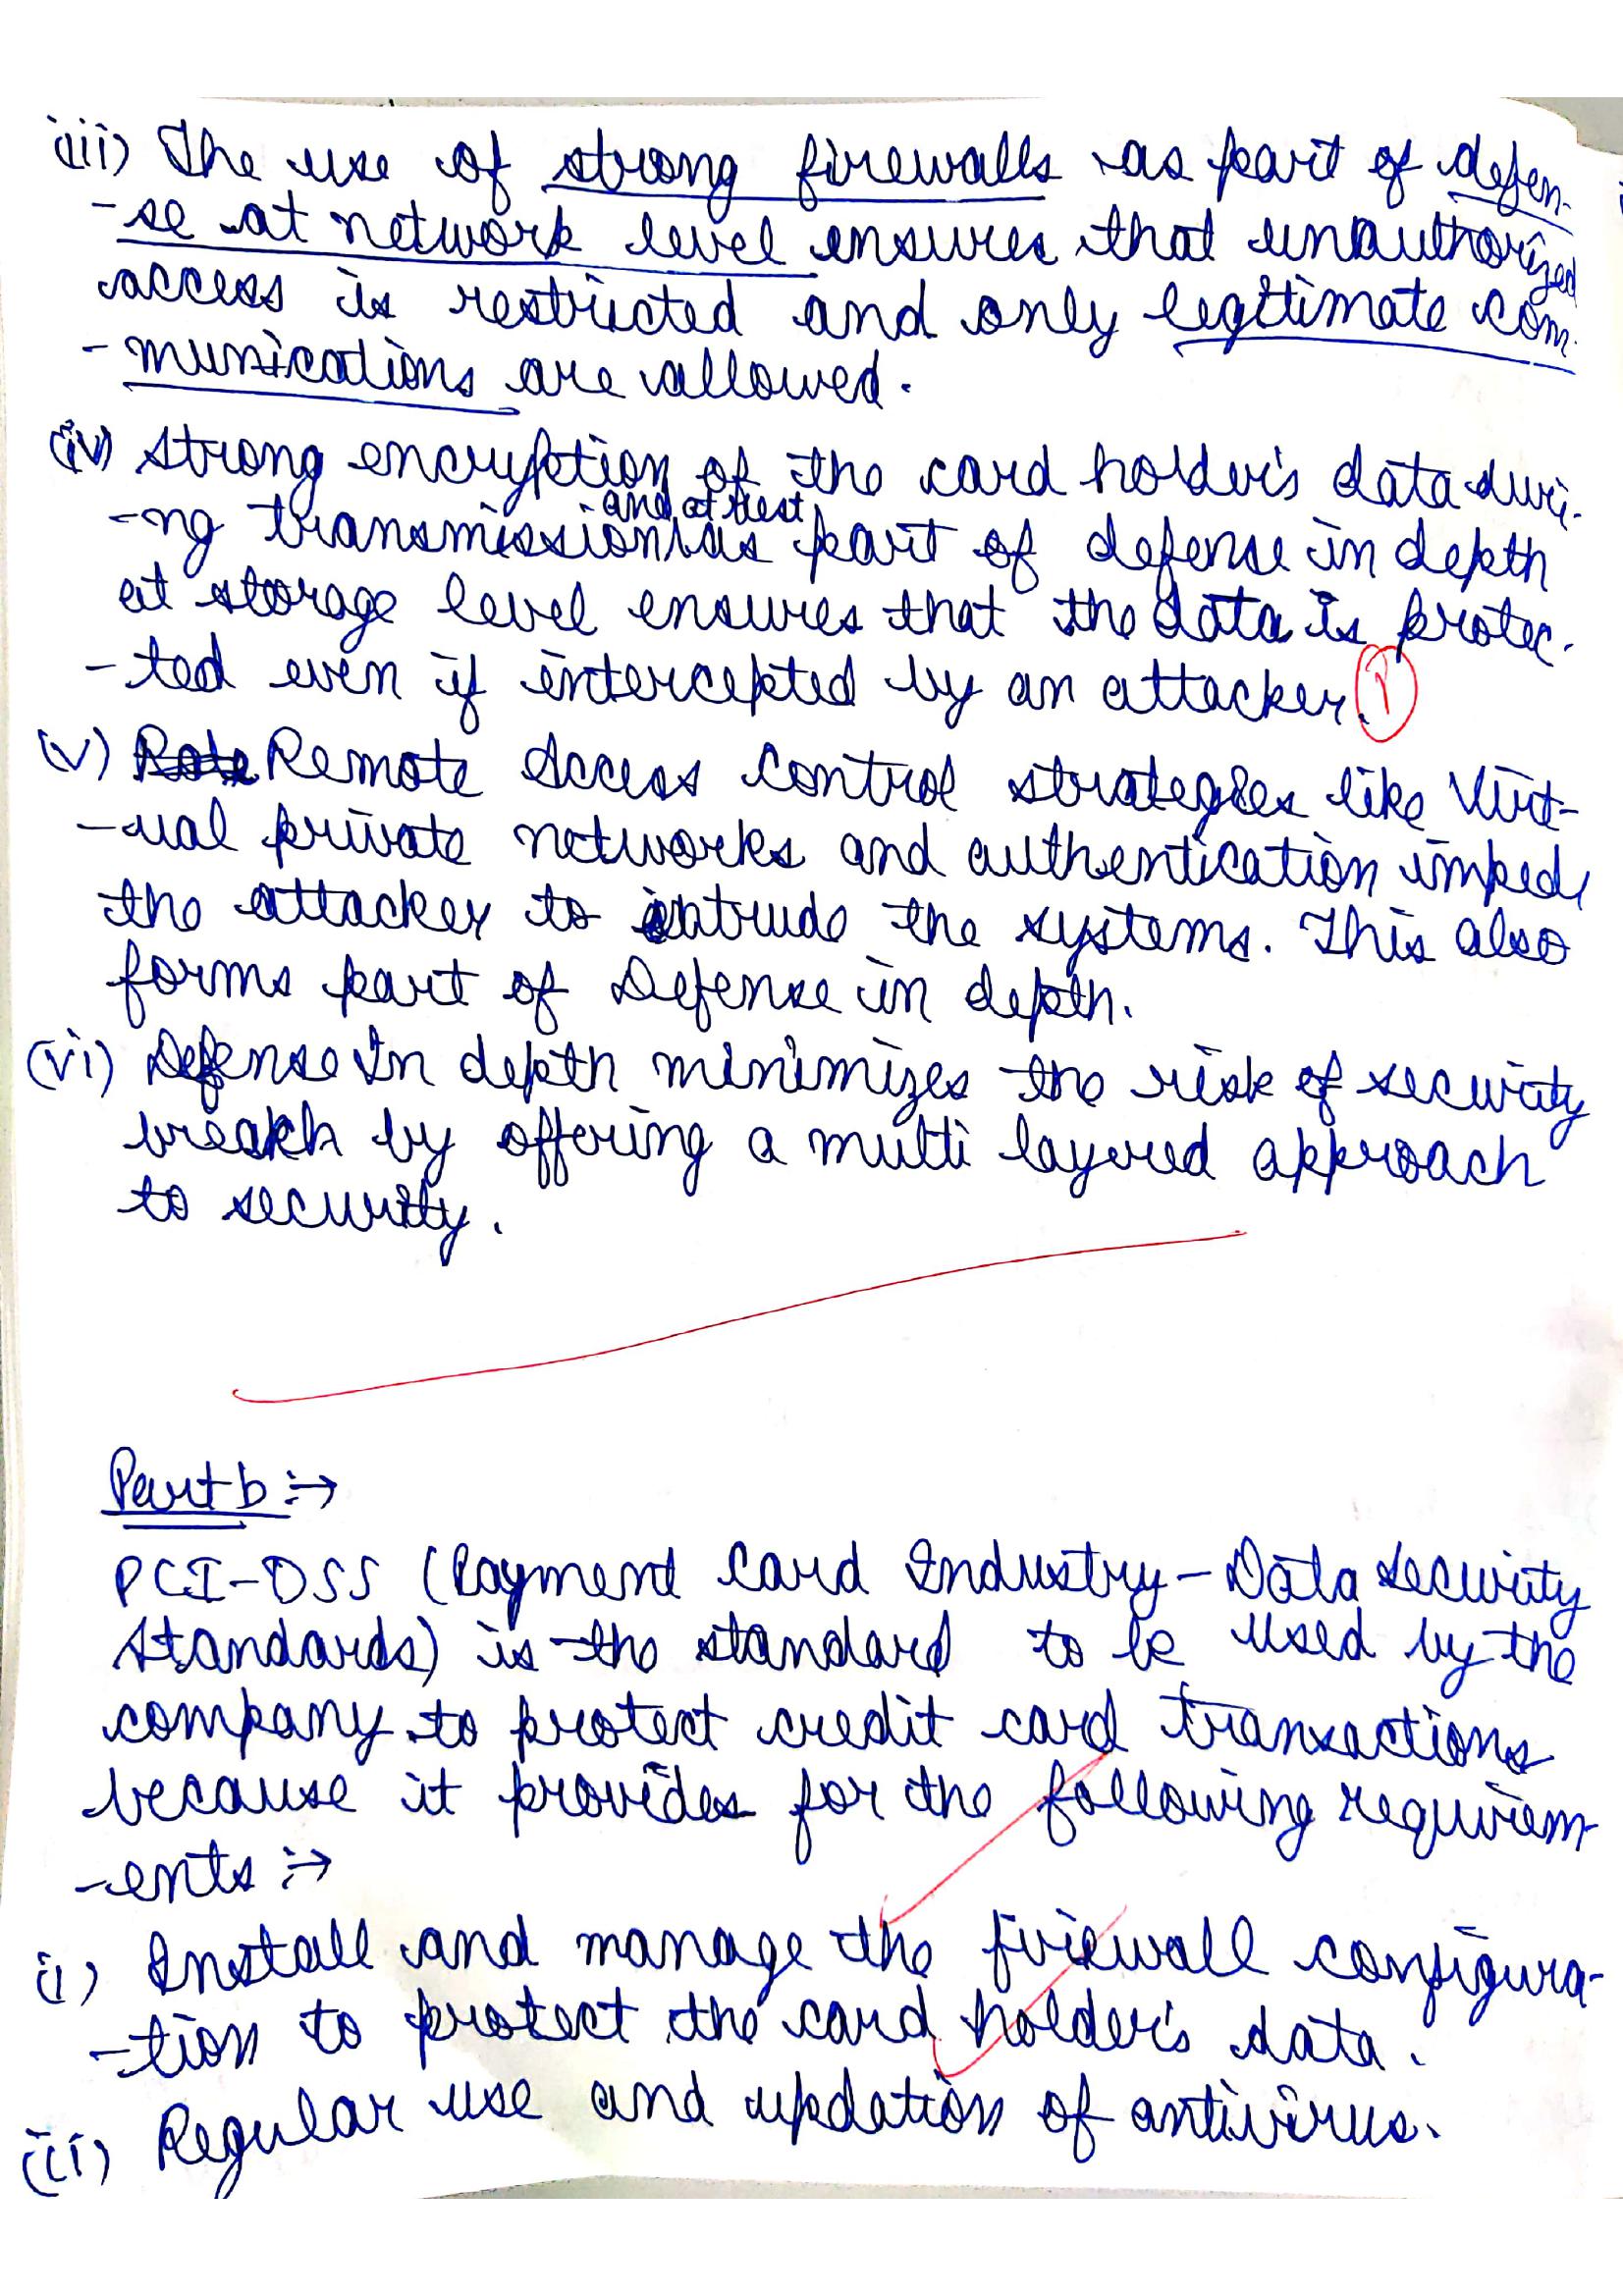 iii) The use of strong firewalls as part of defen-
-se at network level ensures that unauthorized
access is restricted and only legitimate com-
-munications are allowed.
(iv) Strong encryption of the card holder's data duri-
and at rest
-ng transmission as part of defense in depth
at storage level ensures that the data is protec-
-ted even if intercepted by an attacker.
(v) Remote Access control strategies like Virt-
-ual private networks and authentication impede
the attacker to intrude the systems. This also
forms part of Defense in depth.
(vi) Defense In depth minimizes the risk of security
breach by offering a multi layered approach
to security.
Part b :→
PCI-DSS (Payment Card Industry - Data Security
Standards) is the standard to be used by the
company to protect credit card transactions
because it provides for the following requirem-
-ents :→
(i) Install and manage the firewall configura-
-tion to protect the card holder's data.
(ii) Regular use and updation of antivirus.